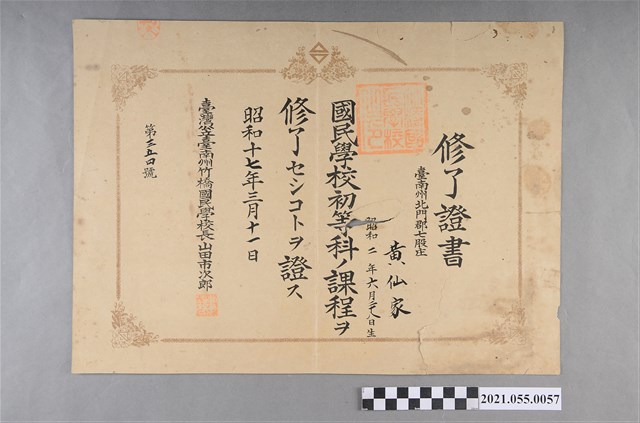 修了證書
臺南州北門郡七股庄
黃仙家
昭和二年六月二十八日生
國民學校初等科ノ課程ヲ
修了セシコトヲ證ス
昭和十七年三月十一日
臺灣公立臺南州竹橋國民學校長山田市次郎
號
2021.055.0057